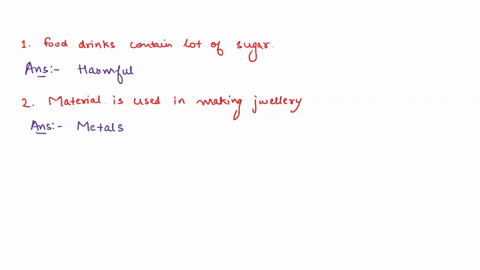 1. food drinks contain lot of sugar.
Ans:- Harmful
2. Material is used in making jwellery
Ans:- Metals